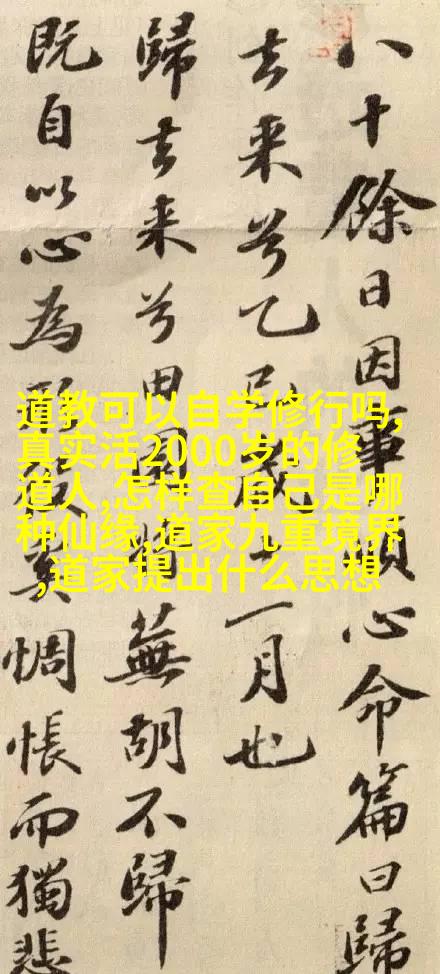 八十餘日因事順心命篇曰歸
去来兮乙巳歲十一月也
歸去来兮田園將蕪胡不歸
既自以心為形役奚惆悵而獨悲
道教可以自学修行吗,
真实活2000岁的修
道人,怎样查自己是哪
种仙缘,道家九重境界
,道家提出什么思想